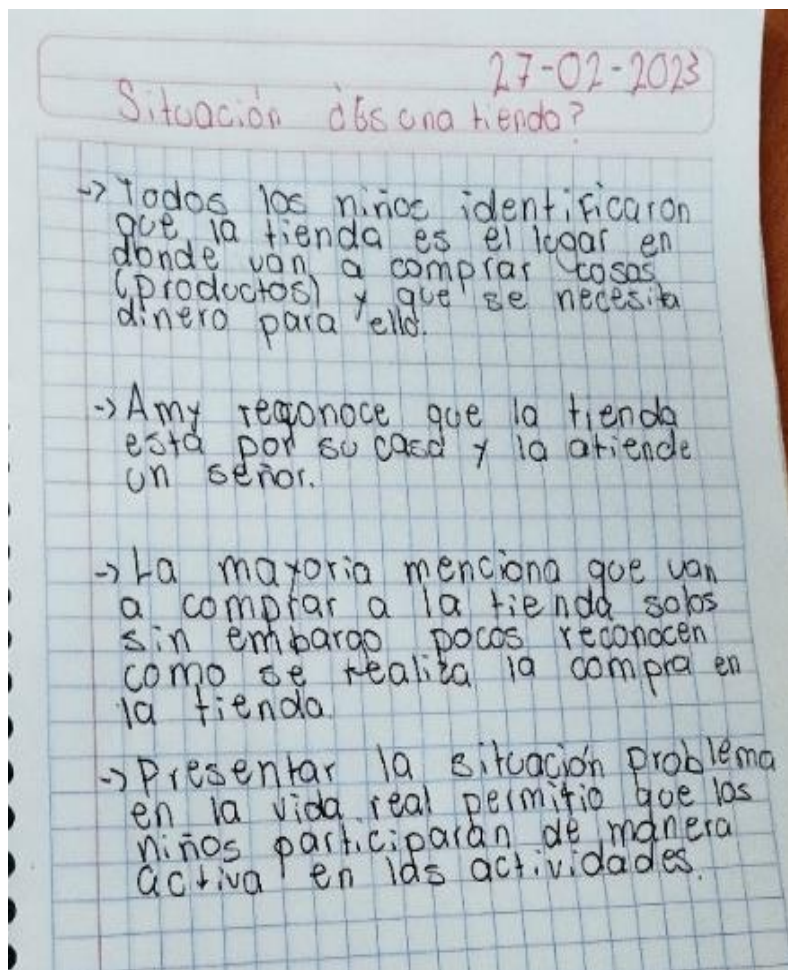 27-02-2023
Situación ¿Es una tienda?
-> Todos los niños identificaron
que la tienda es el lugar en
donde van a comprar cosas
(productos) y que se necesita
dinero para ello.
-> Amy reconoce que la tienda
está por su casa y la atiende
un señor.
-> La mayoria menciona que van
a comprar a la tienda solos
sin embargo pocos reconocen
como se realiza la compra en
la tienda.
-> Presentar la situación problema
en la vida real permitio que los
niños participarán de manera
activa en las actividades.